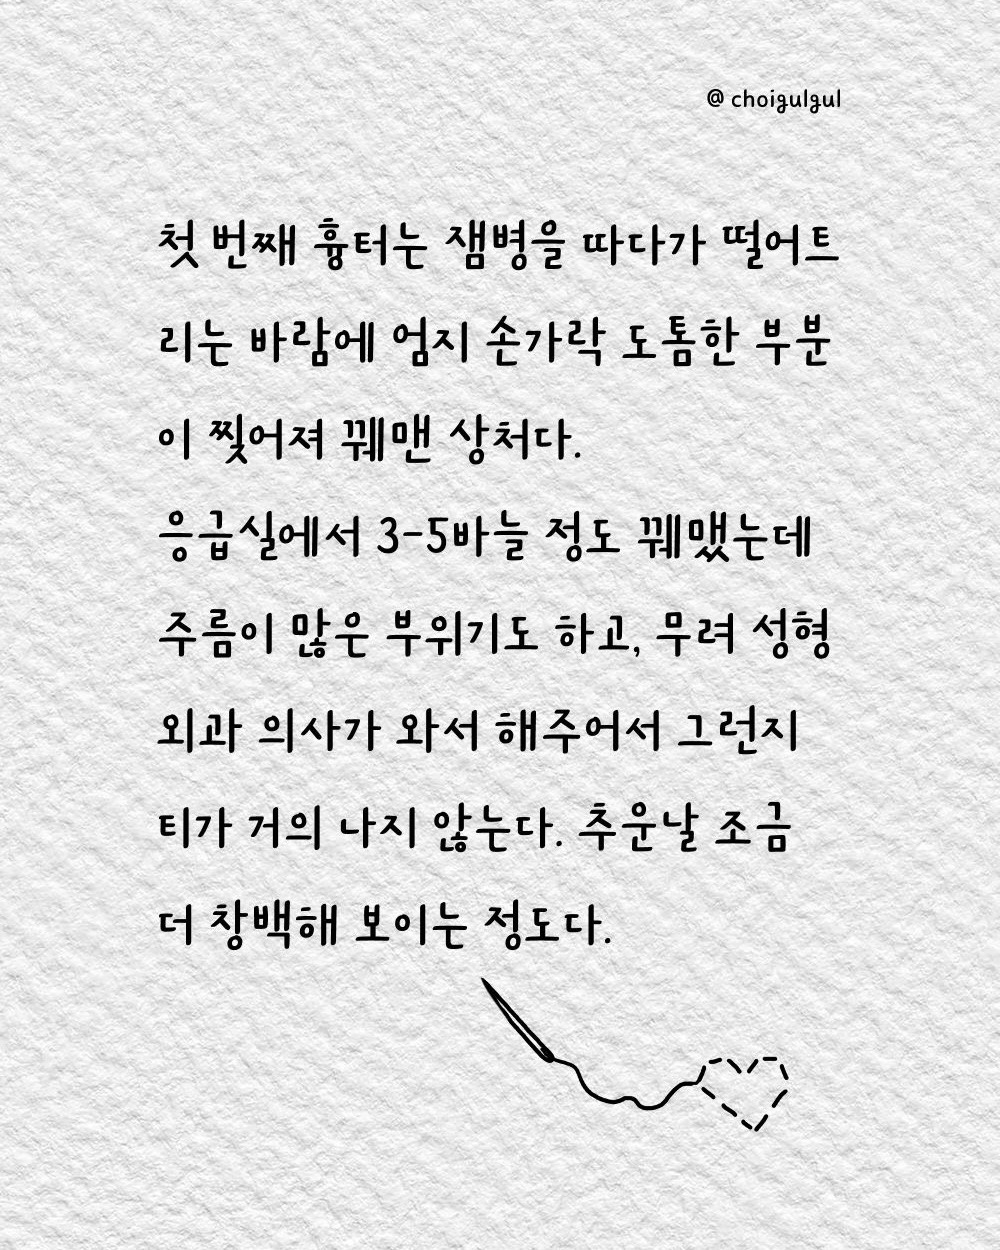 @ choigulgul
첫 번째 흉터는 잼병을 따다가 떨어트
리는 바람에 엄지 손가락 도톰한 부분
이 찢어져 꿰맨 상처다.
응급실에서 3-5바늘 정도 꿰맸는데
주름이 많은 부위기도 하고, 무려 성형
외과 의사가 와서 해주어서 그런지
티가 거의 나지 않는다. 추운날 조금
더 창백해 보이는 정도다.